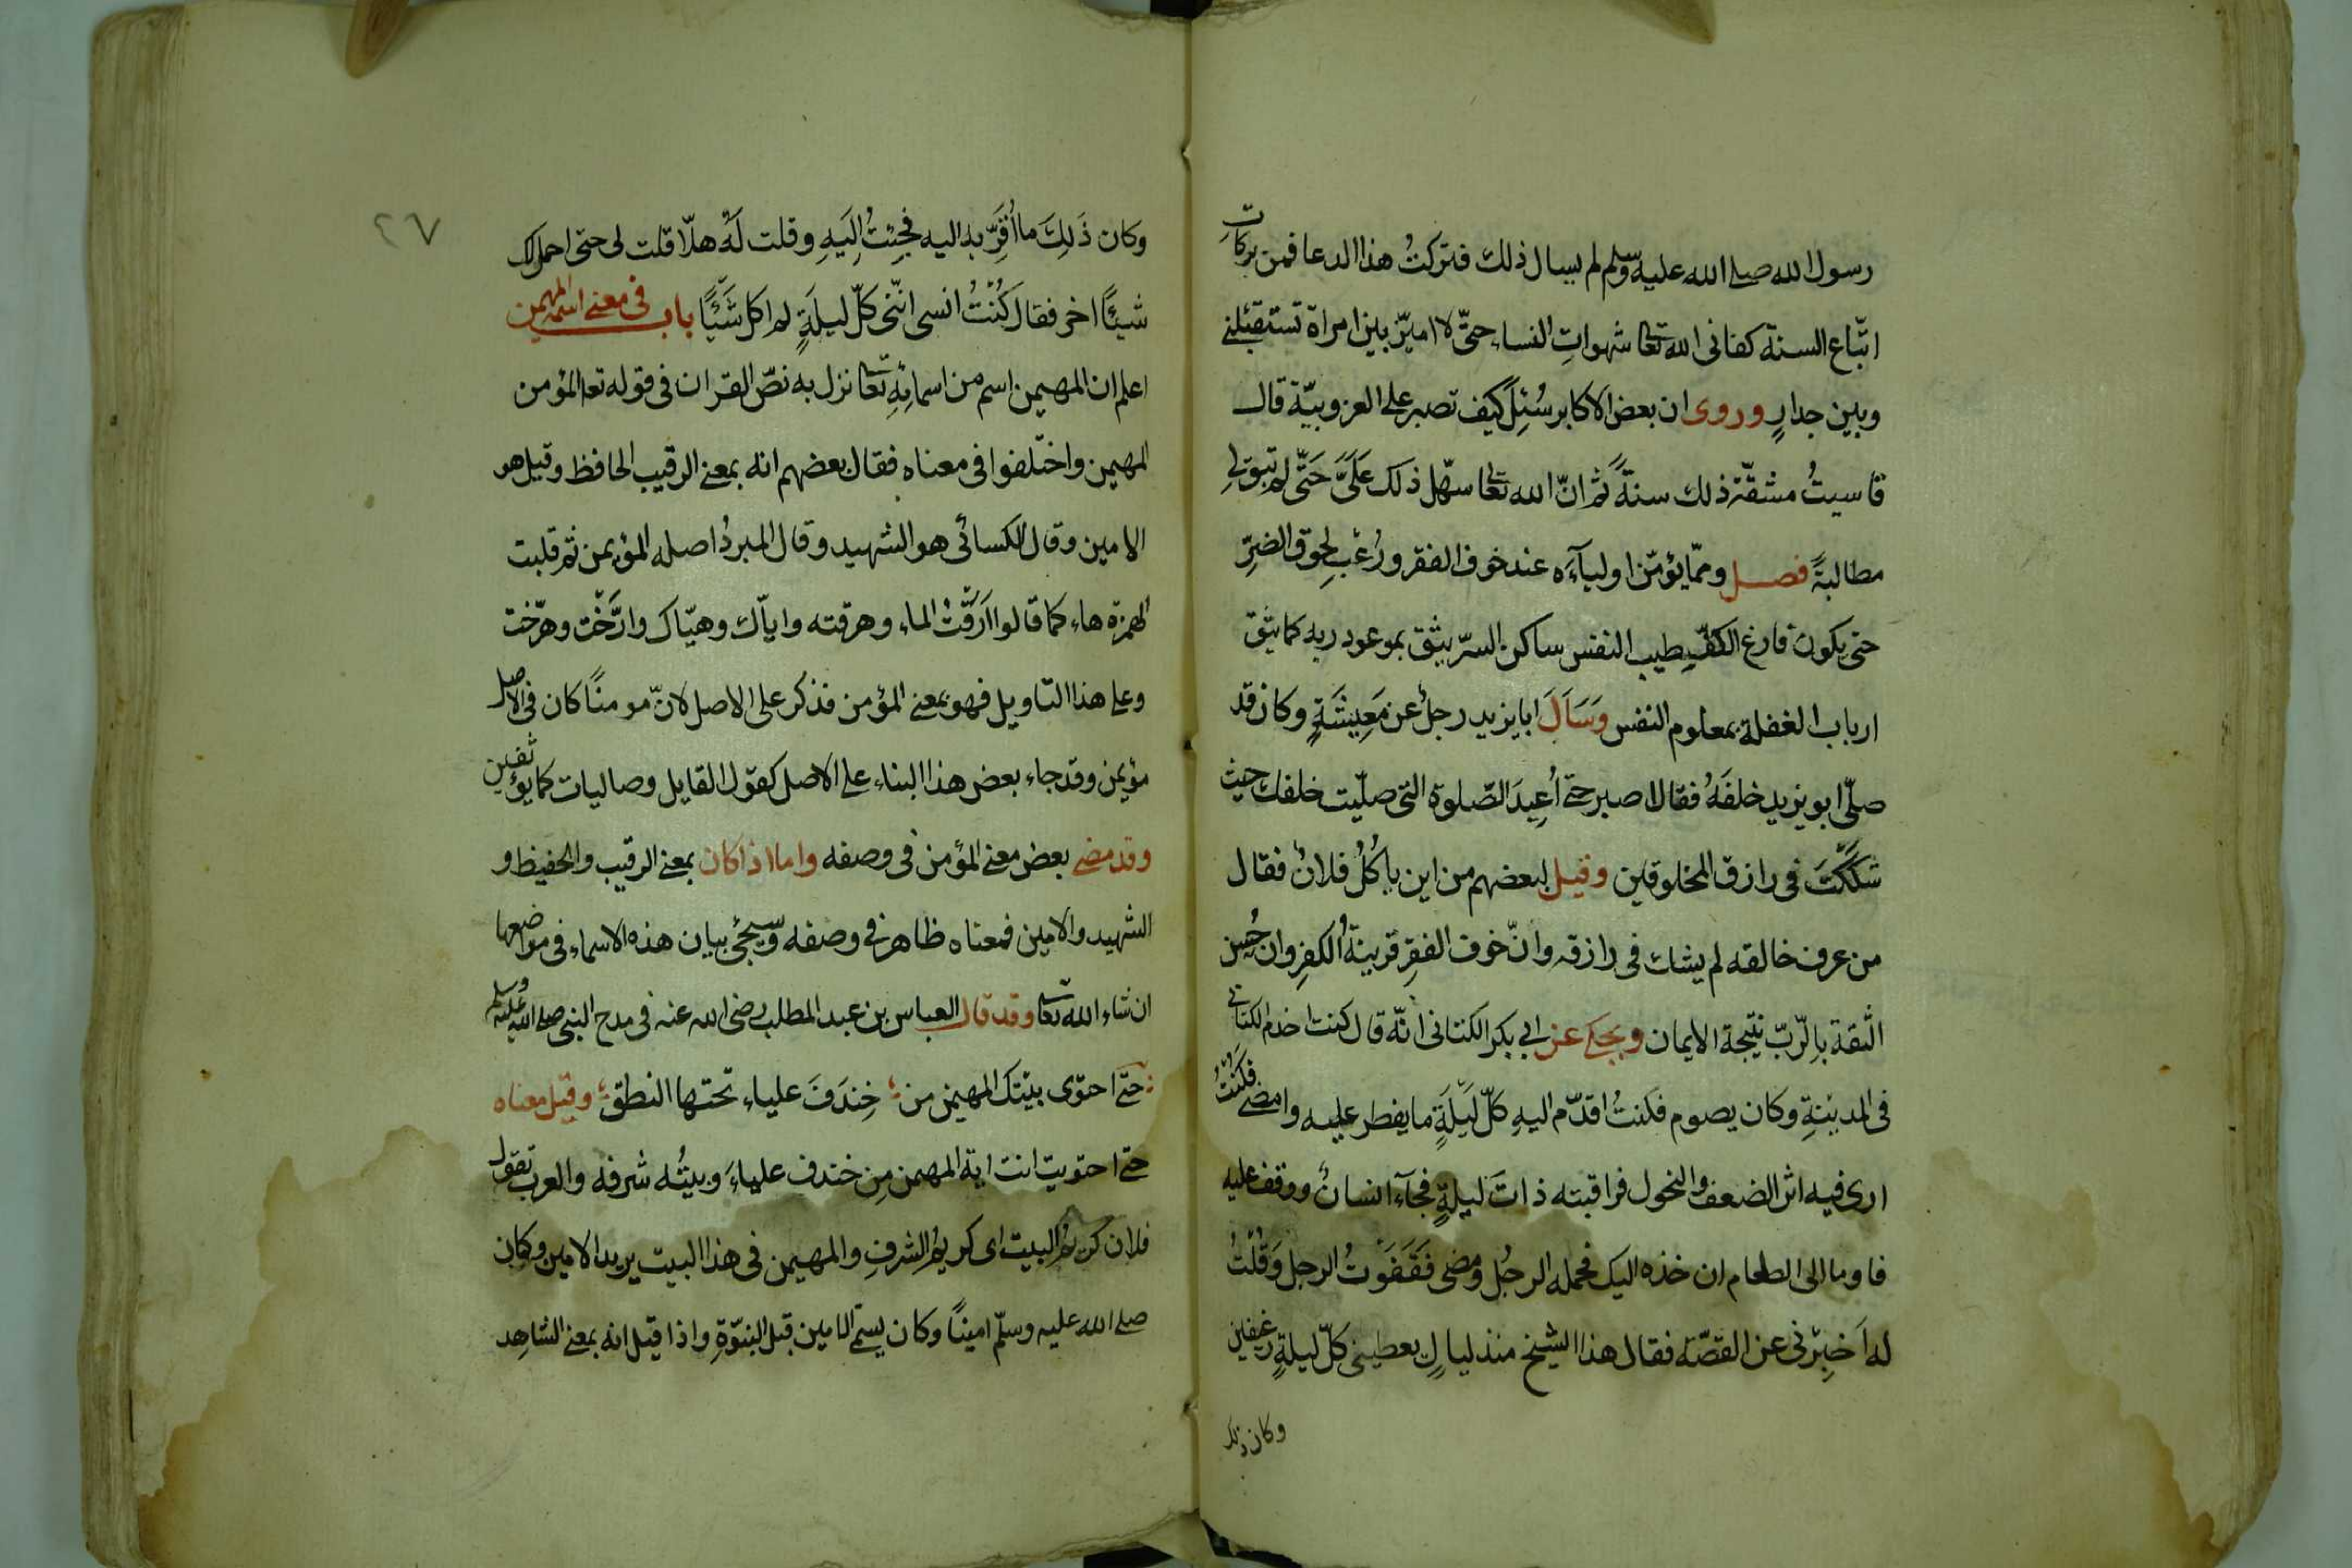 رسول الله صلى الله عليه وسلم لم يسال ذلك فتركتُ هذا الدعا فمن بركات
اتّباع السنة كفانى الله تعا شهواتِ النساء حتّى لا اميّز بين امراة تستقبلنى
وبين جدارٍ وروى ان بعض الاكابر سُئِلَ كيف تصبر على العزوبيّة قال
قاسيتُ مشقّة ذلك سنةً ثم انّ الله تعا سهّل ذلك عَلَىَّ حَتّى لم تبق لى
مطالبةً فصل وممّا يؤمّن اولياءَه عند خوف الفقر ورُعْبِ لحوق الضرِّ
حتى يكون فارغ الكفّ طيب النفس ساكن السرّ يثق بموعود ربه كما يثق
ارباب الغفلة بمعلوم النفس وَسَاَلَ ابا يزيد رجلٌ عن مَعِيشَةٍ وكان قد
صلّى ابو يزيد خلفَهُ فقال اصبر حتى اُعِيدَ الصّلوة التى صلّيت خلفك حيث
شَكَكْتَ فى رازق المخلوقين وقيل لبعضهم من اين ياكُلُ فلانٌ فقال
من عرف خالقه لم يشك فى رازقه وانّ خوف الفقرِ قرينةُ الكفرِ وان حُسن
الثّقة بالرّبّ نتيجة الايمان ويحكى عن ابى بكر الكتانى انّه قال كنت اخدم الكتانى
فى المدينةِ وكان يصوم فكنتُ اقدّم اليهِ كلّ لَيلَةٍ ما يفطر عليه وامضى فكُنْتُ
ارى فيه اثر الضعف والنحول فراقبته ذاتَ ليلةٍ فجآءَ انسانٌ ووقف عليه
فاوما الى الطعام ان خذه اليك فحمله الرجُل ومضى فَقَفَوْتُ الرجل وَقُلْتُ
له اَخبِرْنى عن القصّة فقال هذا الشيخ منذ ليالٍ يعطينى كلّ ليلةٍ رغيفين
وكان ذلك
٢٧
وكان ذَلِكَ ما اُقرَِّبه اليه فجِئتُ اِلَيهِ وقلت لَهُ هلّا قلت لى حتى احمل لك
شيئًا اخر فقال كُنْتُ انسى انّنى كلّ ليلَةٍ لم اكل شَيْئًا باب فى معنى اسمه المهيمن
اعلم ان المهيمن اسم من اسمائِهِ تعا نزل به نصّ القران فى قوله تعا المؤمن
المهيمن واختلفوا فى معناه فقال بعضهم انه بمعنى الرقيب الحافظ وقيل هو
الامين وقال الكسائى هو الشهيد وقال المبردُ اصله المؤيمن ثم قلبت
الهمزة هاء كما قالوا اَرَقْتُ الماء وهرقته واياّك وهيّاك وارّختُ وهرّخت
وعلى هذا التاويل فهو بمعنى المؤمن فذكر على الاصل لانّ مومنًا كان فى الاصل
مؤيمن وقد جاء بعض هذا البناء على الاصل كقول القايل وصاليات كما يؤثفين
وقد مضى بعض معنى المؤمن فى وصفه واما اذا كان بمعنى الرقيب والحفيظ و
الشهيد والامين فمعناه ظاهر فى وصفه وسيجئ بيان هذه الاسماء فى مواضعها
ان شاء الله تعا وقد قال العباس بن عبد المطلب رضى الله عنه فى مدح النبى صلى الله عليه وسلم
حتى احتوى بيتك المهيمن من خِندَفَ علياء تحتها النطق وقيل معناه
حتى احتويت انت اية المهمن مِن خندف علياءَ وبيتُه شرفه والعرب تقول
فلان كريمُ البيت اى كريمُ الشرفِ والمهيمن فى هذا البيت يريد الامين وكان
صلى الله عليه وسلّم امينًا وكان يسمّى الامين قبل النبوّةِ واذا قيل انه بمعنى الشاهد